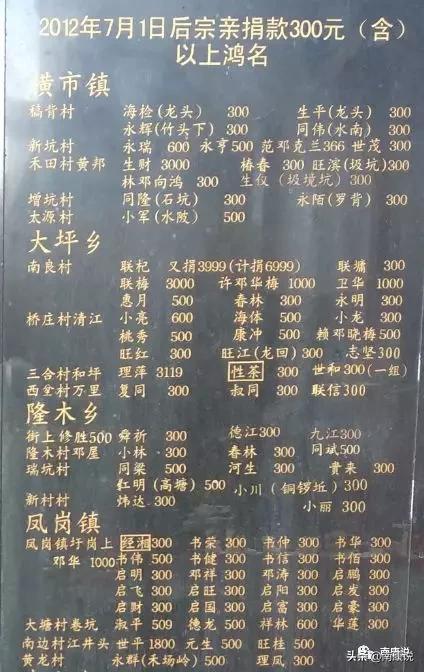 2012年7月1日后宗亲捐款300元（含）
以上鸿名
横市镇
稿背村 海检(龙头) 300 生平(龙头) 300
永辉(竹头下) 300 同伟(水南) 300
新坑村 永瑞 600 永亨500 范邓克兰366 世茂 300
禾田村黄邦 生财 3000 椿春 300 旺滨(圾坑)300
林邓向鸿 300 生仪(圾境坑) 300
增坑村 同隆(石坑) 300 永陌(罗背) 300
太源村 小军(水陂) 500
大坪乡
南良村 联杞 又捐3999(计捐6999) 联墉 300
联梅 3000 许邓华梅 1000 卫华 1000
惠月 500 春林 300 永明 300
桥庄村清江 小亮 600 海体 500 小龙 300
桃秀 500 康冲 500 赖邓晓梅500
旺红 300 旺江(龙回) 300 志坚300
三合村和坪 理萍 3119 性茶 300 世和300(一组)
西坌村万里 复同 300 叔同 300 联信300
隆木乡
街上 修胜500 舜祈 300 德江300 九江300
隆木村邓屋 小林 300 春林 300 同斌500
瑞坑村 同梁 500 河生 300 贵来 300
红明(高塘) 500 小川(铜锣坵) 300
新村村 炜达 300 小丽 300
凤岗镇
凤岗镇圩岗上 经湘300 书荣 300 书仲 300 书华 300
邓华 1000 书伟 500 书健 300 书信 300 书佰 300
启明 300 邓祥 300 邓涛 300 启鹏 300
启飞 300 启旺 300 启阳 300 启发 300
启财 300 启国 300 启富 300 启豪 300
大塘村卷坑 淑平 509 德龙 500 祥林 600 华莲 300
南边村江井头 世平1800 元生 500 旺桂 500
黄龙村 永群(禾场岭) 500 理凤 300
南康说
头条@南康说